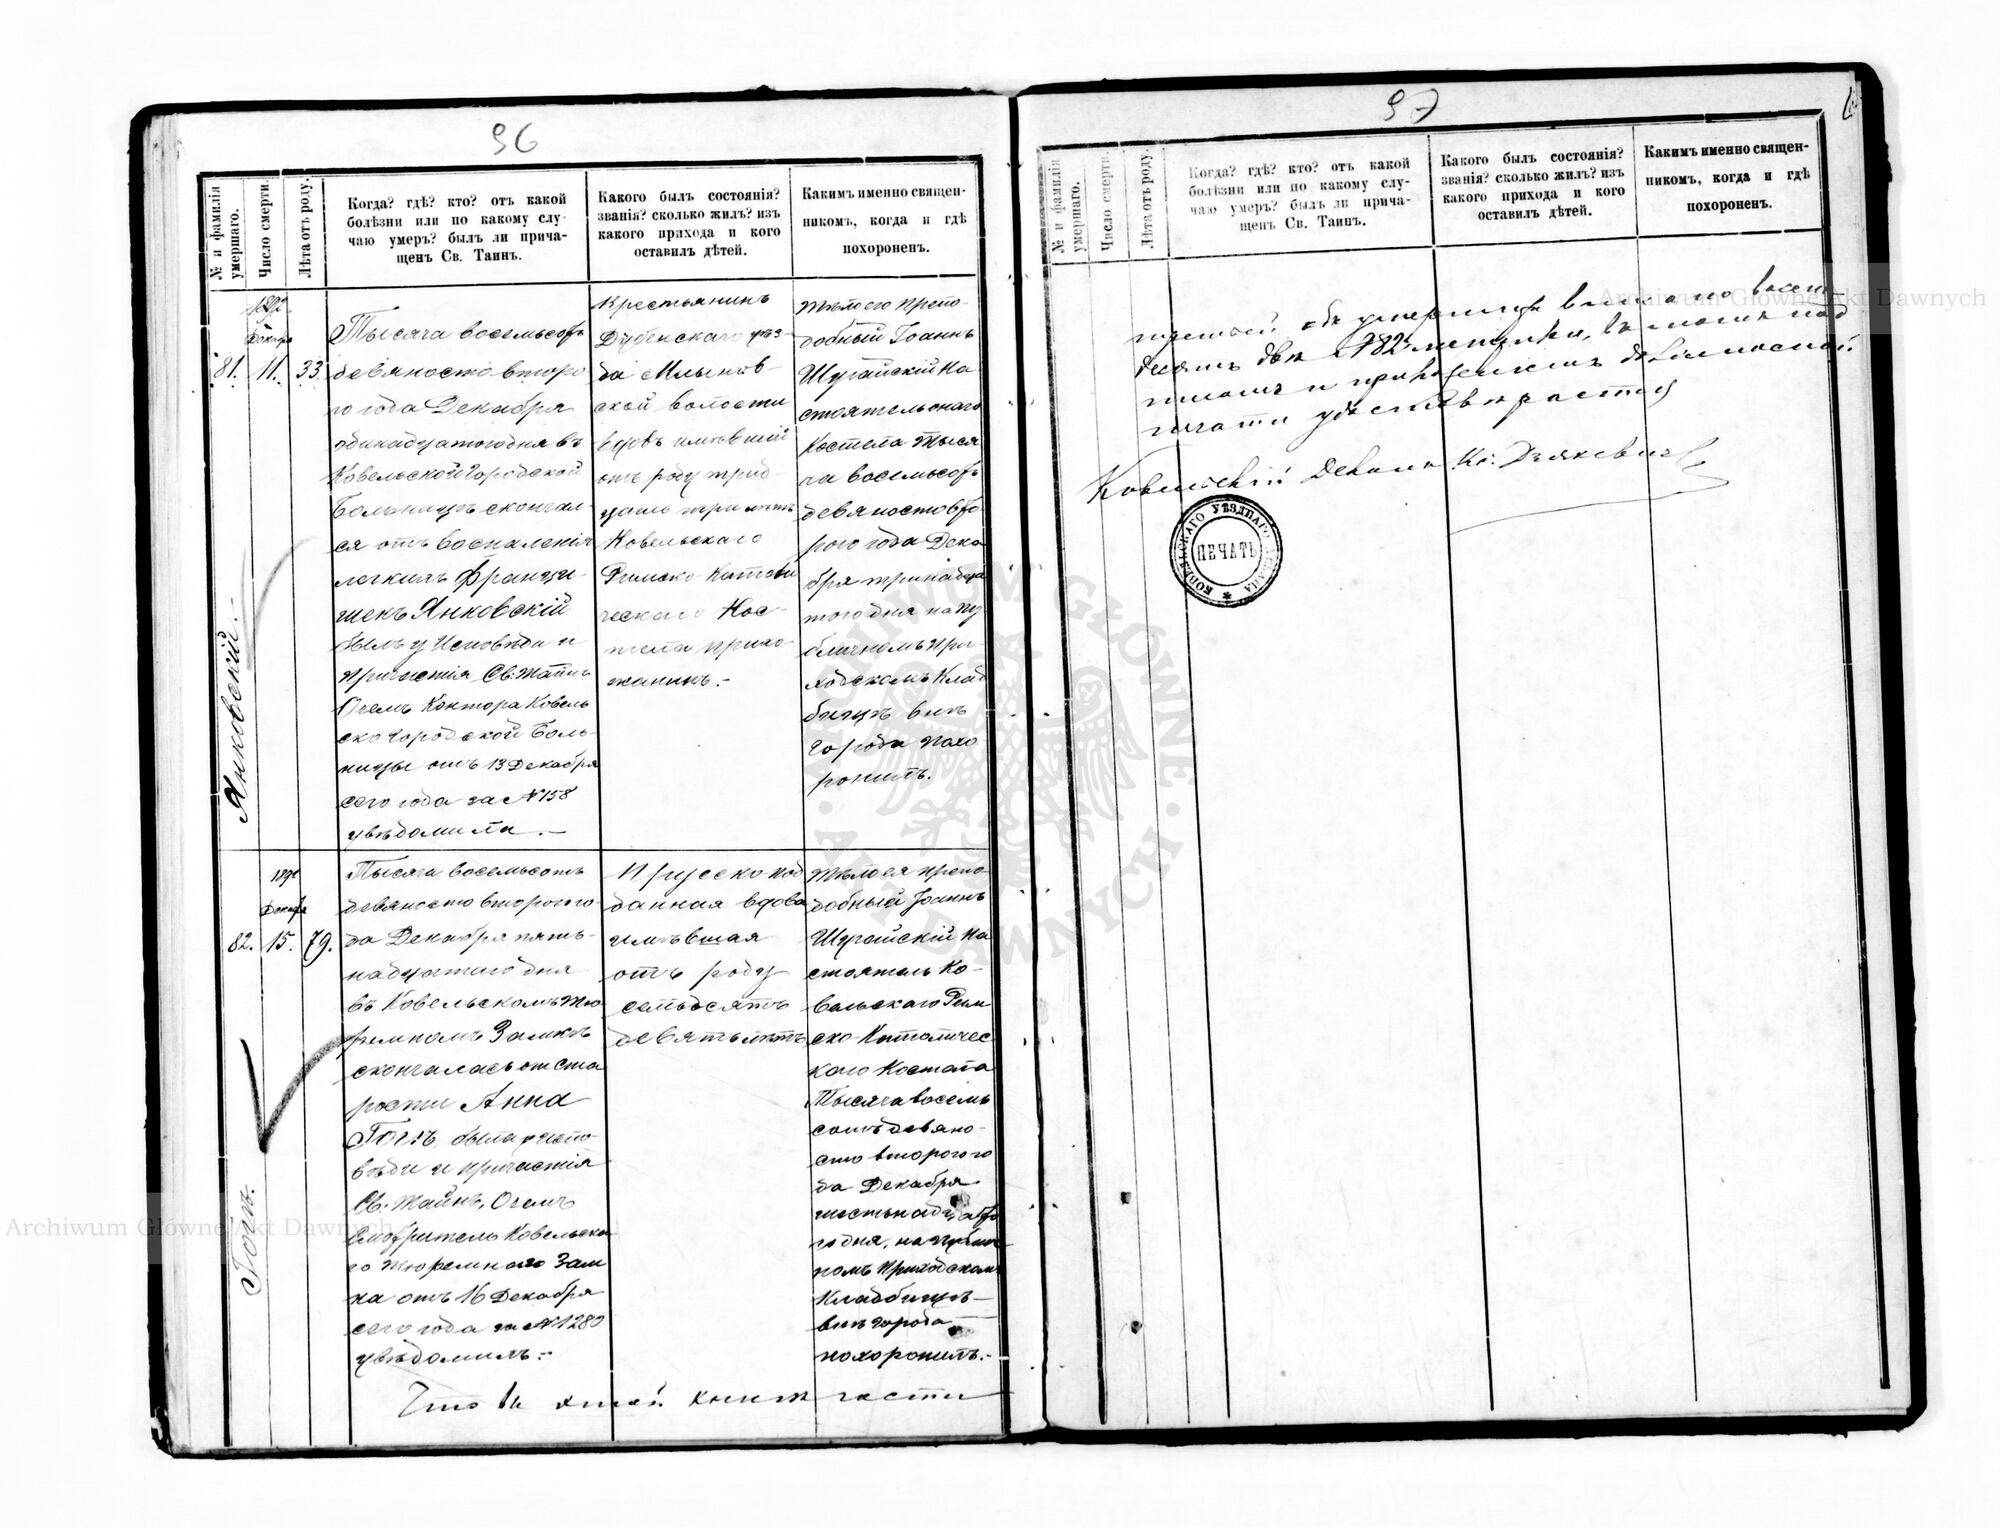 96
№ и фамилія умершаго.
Число смерти.
Лѣта отъ роду.
Когда? гдѣ? кто? отъ какой
болѣзни или по какому слу-
чаю умеръ? былъ ли прича-
щенъ Св. Таинъ.
Какого былъ состоянія?
званія? сколько жилъ? изъ
какого прихода и кого
оставилъ дѣтей.
Каким именно священ-
никомъ, когда и гдѣ
похороненъ.
81.
Янковскій.
1892
Декабря
11.
33
Тысяча восемьсотъ
девяносто второ
го года Декабря
одинадцатого дня въ
Ковельской Городской
Больницѣ скончал-
ся отъ воспаленія
легкихъ Францы-
шекъ Янковскій
былъ у Исповѣди и
причастія Св. Тайнъ
О чемъ Контора Ковель
ско городской Боль-
ницы отъ 13 Декабря
сего года за № 158
увѣдомила.—
Крестьянинъ
Дубенскаго уѣз-
да Млынов-
ской волости
вдовъ имѣвшій
отъ роду трид-
цать три лѣтъ
Ковельскаго
Римско-Католи
ческаго Кос-
тела прихо-
жанинъ.-
Тѣло его препо-
добный Іоаннъ
Шугайскій На
стоятель онаго
Костела тыся
ча восемьсотъ
девяносто вто-
рого года Дека
бря тринадца
того дня на пу
бличномъ при-
ходскомъ Клад
бищѣ внѣ
города похо
ронилъ.
82.
Гогнъ.
1892
Декабря
15.
79.
Тысяча восемьсотъ
девяносто второго го-
да Декабря пять-
надцатого дня
въ Ковельскомъ тю
ремномъ Замкѣ
скончалась отъ ста
рости Анна
была у испо-
вѣди и причастія
Св. Тайнъ, О чемъ
Смотритель Ковельска
го тюремного Зам
ка отъ 16 Декабря
сего года за № 1289
увѣдомилъ.-
Прусско под
данная вдова
имѣвшая
отъ роду
семьдесятъ
девять лѣтъ
Тѣло ея препо
добный Іоаннъ
Шугайскій На
стоятель Ко-
вельскаго Рим
ско-Католичес
каго Костела
Тысяча восемь
сотъ девяно-
сто второго го
да Декабря
шестьнадцато
го дня, на публич
номъ приходском
Кладбищѣ—
внѣ города—
похоронилъ.-
Что въ этой книгѣ части
97
№ и фамилія умершаго.
Число смерти.
Лѣта отъ роду
Когда? гдѣ? кто? отъ какой
болѣзни или по какому слу-
чаю умеръ? былъ ли прича-
щенъ Св. Таинъ.
Какого былъ состоянія?
званія? сколько жилъ? изъ
какого прихода и кого
оставилъ дѣтей.
Каким именно священ-
никомъ, когда и гдѣ
похороненъ.
третьей объ умершихъ восемь
десятъ два 82 метрики, въ томъ под
писомъ и приложеніемъ должностной
печати удостовѣряется
Ковельскій Деканъ Кс:
КОВЕЛЬСКАГО УѢЗДНАГО ДЕКАНА
ПЕЧАТЬ
Archiwum Główne Akt Dawnych
Archiwum Główne Akt Dawnych
ARCHIWUM GŁÓWNE AKT DAWNYCH